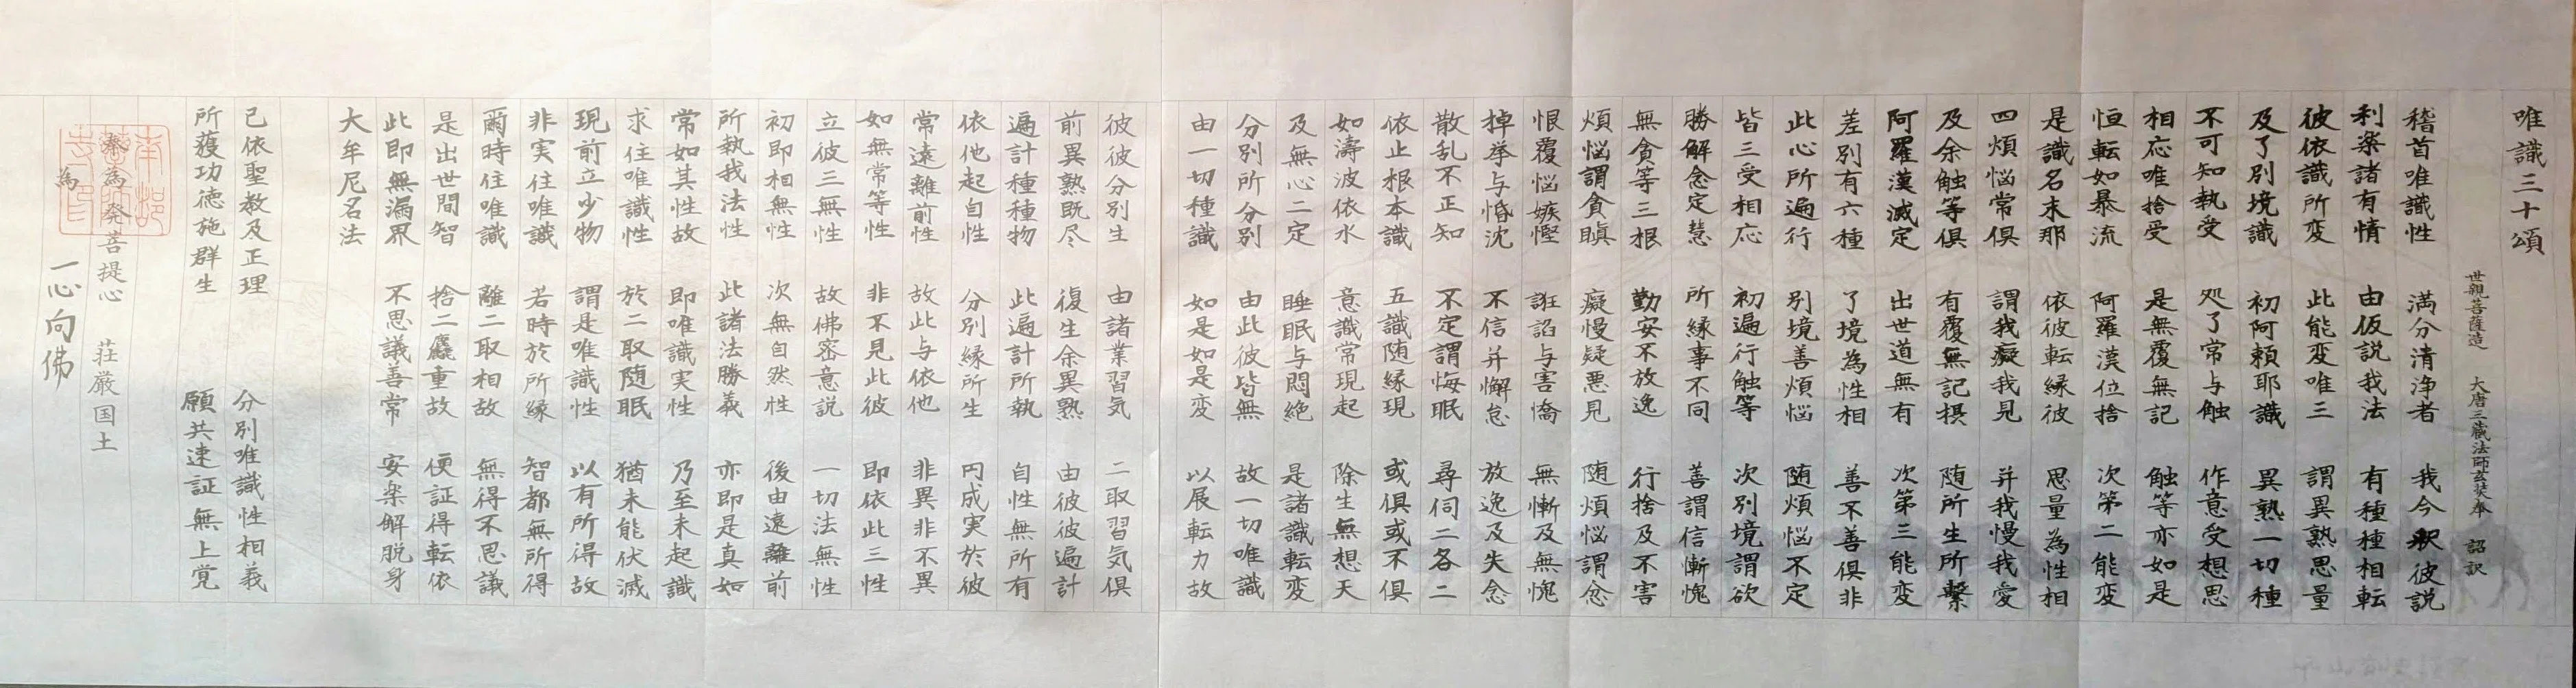 唯識三十頌
世親菩薩造 大唐三蔵法師玄奘奉 詔訳
稽首唯識性 満分清浄者 我今釈彼説
利楽諸有情 由仮説我法 有種種相転
彼依識所変 此能変唯三 謂異熟思量
及了別境識 初阿頼耶識 異熟一切種
不可知執受 処了常与触 作意受想思
相応唯捨受 是無覆無記 触等亦如是
恒転如暴流 阿羅漢位捨 次第二能変
是識名末那 依彼転縁彼 思量為性相
四煩悩常俱 謂我癡我見 并我慢我愛
及余触等俱 有覆無記摂 随所生所繋
阿羅漢滅定 出世道無有 次第三能変
差別有六種 了境為性相 善不善俱非
此心所遍行 別境善煩悩 随煩悩不定
皆三受相応 初遍行触等 次別境謂欲
勝解念定慧 所縁事不同 善謂信慚愧
無貪等三根 勤安不放逸 行捨及不害
煩悩謂貪瞋 癡慢疑悪見 随煩悩謂忿
恨覆悩嫉慳 誑諂与害憍 無慚及無愧
掉挙与惛沈 不信并懈怠 放逸及失念
散乱不正知 不定謂悔眠 尋伺二各二
依止根本識 五識随縁現 或俱或不俱
如濤波依水 意識常現起 除生無想天
及無心二定 睡眠与悶絶 是諸識転変
分別所分別 由此彼皆無 故一切唯識
由一切種識 如是如是変 以展転力故
彼彼分別生 由諸業習気 二取習気俱
前異熟既尽 復生余異熟 由彼彼遍計
遍計種種物 此遍計所執 自性無所有
依他起自性 分別縁所生 円成実於彼
常遠離前性 故此与依他 非異非不異
如無常等性 非不見此彼 即依此三性
立彼三無性 故佛密意説 一切法無性
初即相無性 次無自然性 後由遠離前
所執我法性 此諸法勝義 亦即是真如
常如其性故 即唯識実性 乃至未起識
求住唯識性 於二取随眠 猶未能伏滅
現前立少物 謂是唯識性 以有所得故
非実住唯識 若時於所縁 智都無所得
爾時住唯識 離二取相故 無得不思議
是出世間智 捨二麤重故 便証得転依
此即無漏界 不思議善常 安楽解脱身
大牟尼名法
已依聖教及正理 分別唯識性相義
所獲功徳施群生 願共速証無上覚
奉為 発菩提心 荘厳国土
為 一心向佛